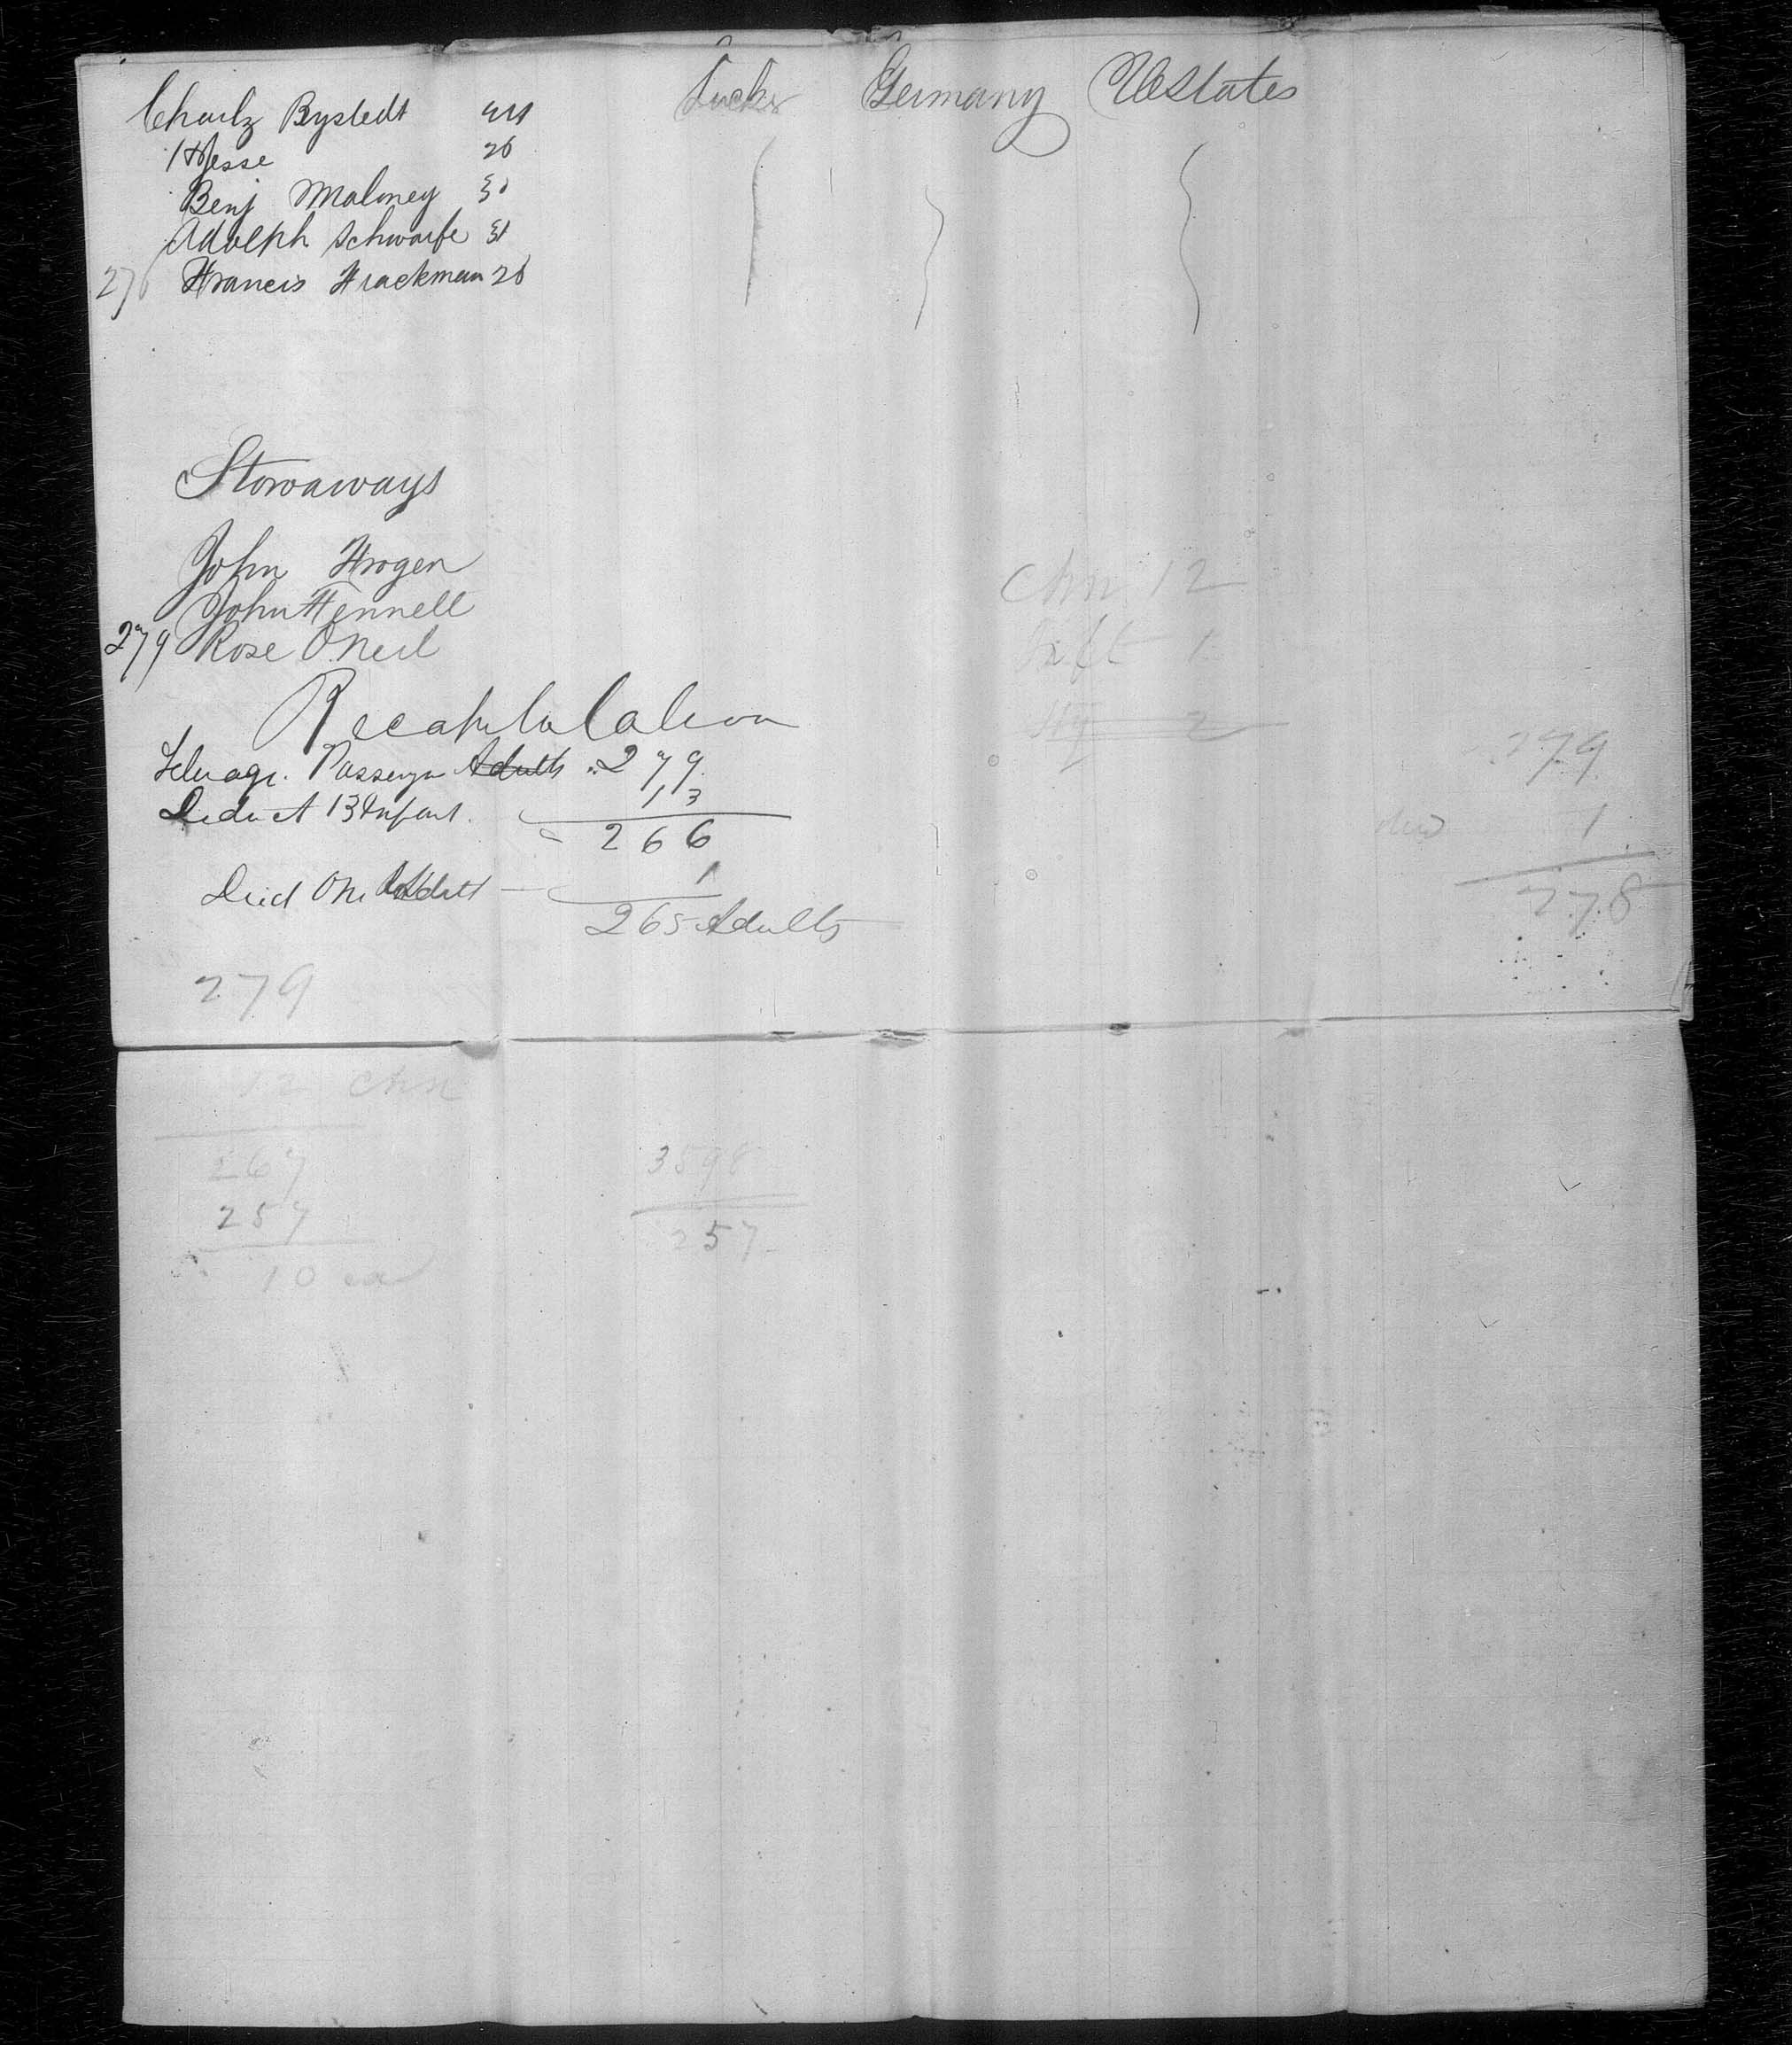 Charlz Bystedt Germany UStates
H Hesse 26
Benj Maloney 30
Adolph Schwarfe 31
276 Francis Frackman 26
Stowaways
John Frogen
John Fennell
279 Rose ONeil
Recapitulation
Passengr Adults 279
Deduct 13 Infant. 13
266
Died One Adult 1
265 Adults
Chn 12
Inft 1
2
279
1
278
279
12 Chn
267
257
10
3598
257